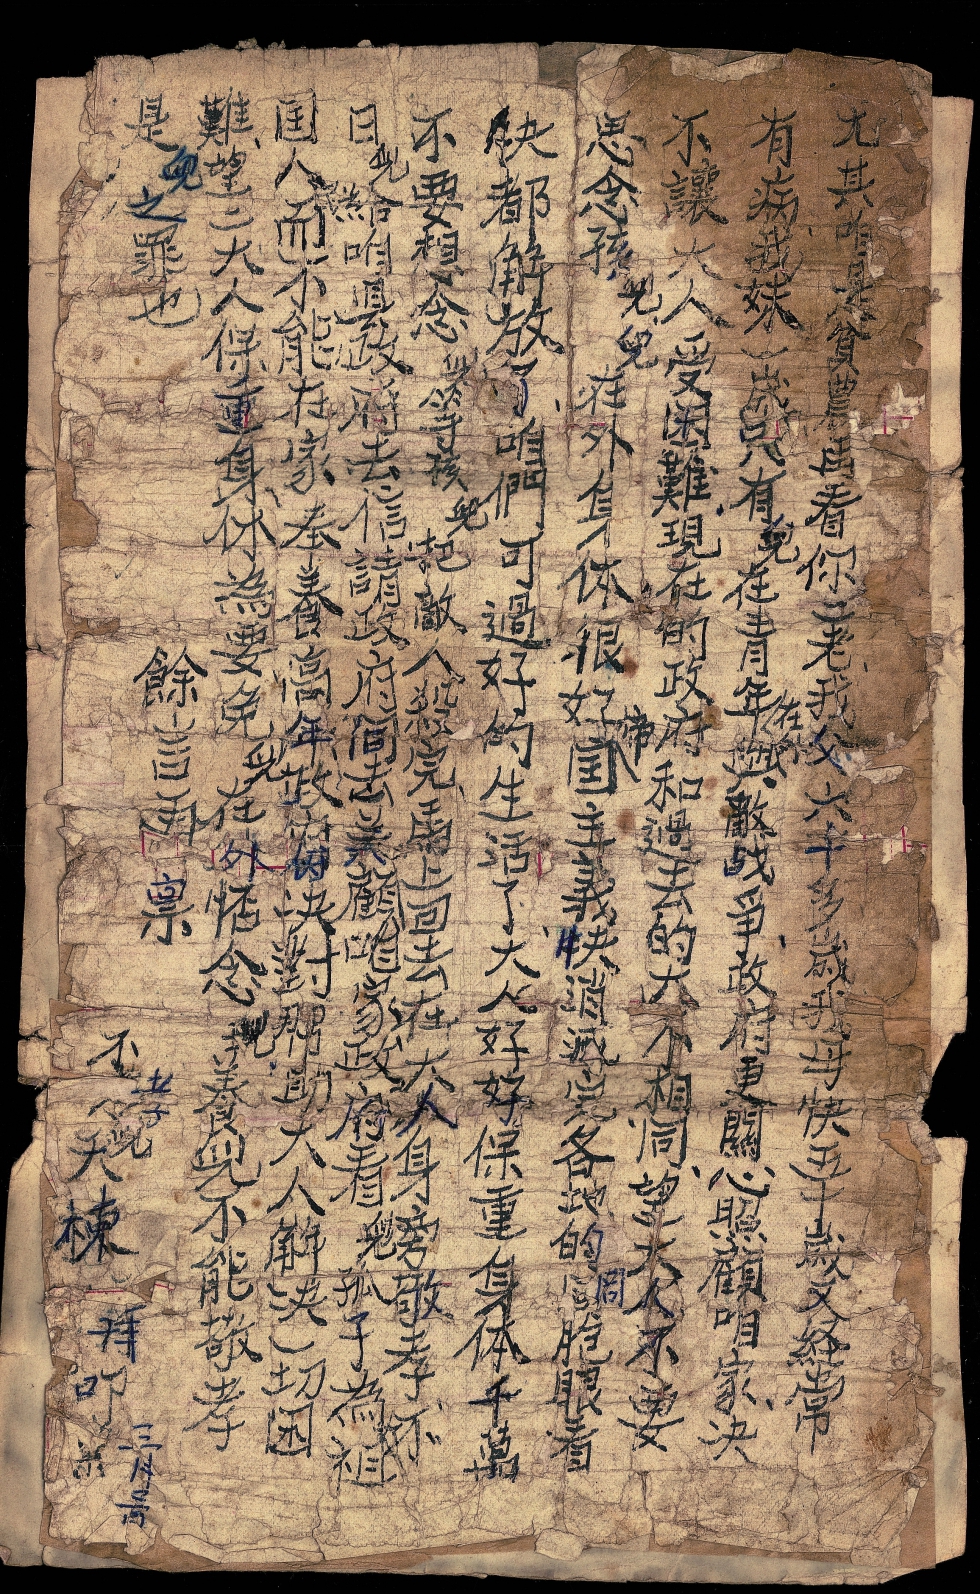 尤其咱是貧農再看你二老我父六十多歲我母快五十歲又経常
有病我妹一歲只有兒在青年在外与敵战爭政府更關心照顧咱家決
不讓大人受困難現在的政府和過去的大不相同望大人不要
思念孩兒兒在外身体很好帝国主義快消滅完各地的同胞眼看
快都解放了咱們可過好的生活了大人好好保重身体千萬
不要想念兒等孩兒把敵人殺完馬上回去在大人身旁敬孝不
日兒給咱縣政府去信請政府同志美顧咱家政府看兒孤子為祖
国人而不能在家奉養高年政府決對帮助大人解決一切困
難望二大人保重身体為要免兒在外惦念養兒不能敬孝
是兒之罪也
餘言再禀
不孝兒天棟
拜叩